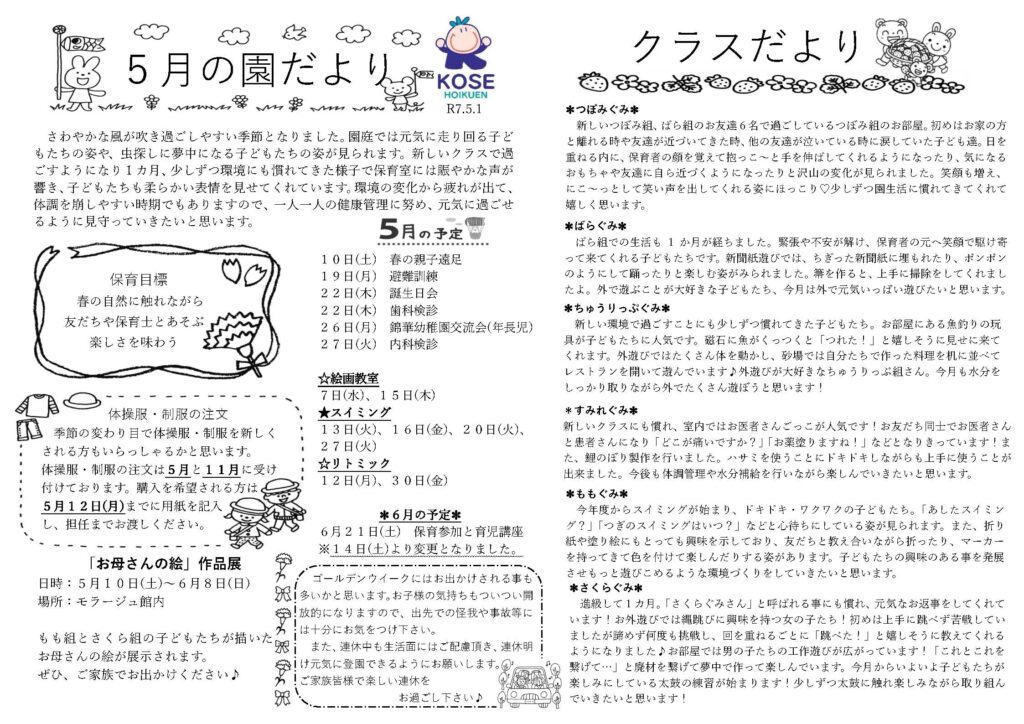 5月の園だより
KOSE
HOIKUEN
R7.5.1
さわやかな風が吹き過ごしやすい季節となりました。園庭では元気に走り回る子ど
もたちの姿や、虫探しに夢中になる子どもたちの姿が見られます。新しいクラスで過
ごすようになり1カ月、少しずつ環境にも慣れてきた様子で保育室には賑やかな声が
響き、子どもたちも柔らかい表情を見せてくれています。環境の変化から疲れが出て、
体調を崩しやすい時期でもありますので、一人一人の健康管理に努め、元気に過ごせ
るように見守っていきたいと思います。
保育目標
春の自然に触れながら
友だちや保育士とあそぶ
楽しさを味わう
5月の予定
10日(土) 春の親子遠足
19日(月) 避難訓練
22日(木) 誕生日会
22日(木) 歯科検診
26日(月) 錦華幼稚園交流会(年長児)
27日(火) 内科検診
☆絵画教室
7日(水)、15日(木)
★スイミング
13日(火)、16日(金)、20日(火)、
27日(火)
☆リトミック
12日(月)、30日(金)
＊6月の予定＊
6月21日(土) 保育参加と育児講座
※14日(土)より変更となりました。
体操服・制服の注文
季節の変わり目で体操服・制服を新しく
される方もいらっしゃるかと思います。
体操服・制服の注文は5月と11月に受け
付けております。購入を希望される方は
5月12日(月)までに用紙を記入
し、担任までお渡しください。
「お母さんの絵」作品展
日時：5月10日(土)～6月8日(日)
場所：モラージュ館内
もも組とさくら組の子どもたちが描いた
お母さんの絵が展示されます。
ぜひ、ご家族でお出かけください♪
ゴールデンウイークにはお出かけされる事も
多いかと思います。お子様の気持ちもついつい開
放的になりますので、出先での怪我や事故等に
は十分にお気をつけ下さい。
また、連休中も生活面にはご配慮頂き、連休明
け元気に登園できるようにお願いします。
ご家族皆様で楽しい連休を
お過ごし下さい♪
クラスだより
＊つぼみぐみ＊
新しいつぼみ組、ばら組のお友達6名で過ごしているつぼみ組のお部屋。初めはお家の方
と離れる時や友達が近づいてきた時、他の友達が泣いている時に涙していた子ども達。日を
重ねる内に、保育者の顔を覚えて抱っこ～と手を伸ばしてくれるようになったり、気になる
おもちゃや友達に自ら近づくようになったりと沢山の変化が見られました。笑顔も増え、
にこ～っとして笑い声を出してくれる姿にほっこり♡少しずつ園生活に慣れてきてくれて
嬉しく思います。
＊ばらぐみ＊
ばら組での生活も 1 か月が経ちました。緊張や不安が解け、保育者の元へ笑顔で駆け寄
って来てくれる子どもたちです。新聞紙遊びでは、ちぎった新聞紙に埋もれたり、ポンポン
のようにして踊ったりと楽しむ姿がみられました。箒を作ると、上手に掃除をしてくれました
よ。外で遊ぶことが大好きな子どもたち、今月は外で元気いっぱい遊びたいと思います。
＊ちゅうりっぷぐみ＊
新しい環境で過ごすことにも少しずつ慣れてきた子どもたち。お部屋にある魚釣りの玩
具が子どもたちに人気です。磁石に魚がくっつくと「つれた！」と嬉しそうに見せに来て
くれます。外遊びではたくさん体を動かし、砂場では自分たちで作った料理を机に並べて
レストランを開いて遊んでいます♪外遊びが大好きなちゅうりっぷ組さん。今月も水分を
しっかり取りながら外でたくさん遊ぼうと思います！
＊すみれぐみ＊
新しいクラスにも慣れ、室内ではお医者さんごっこが人気です！お友だち同士でお医者さん
と患者さんになり「どこが痛いですか？」「お薬塗りますね！」などとなりきっています！ま
た、鯉のぼり製作を行いました。ハサミを使うことにドキドキしながらも上手に使うことが
出来ました。今後も体調管理や水分補給を行いながら楽しんでいきたいと思います。
＊ももぐみ＊
今年度からスイミングが始まり、ドキドキ・ワクワクの子どもたち。「あしたスイミン
グ？」「つぎのスイミングはいつ？」などと心待ちにしている姿が見られます。また、折り
紙や塗り絵にもとっても興味を示しており、友だちと教え合いながら折ったり、マーカー
を持ってきて色を付けて楽しんだりする姿があります。子どもたちの興味のある事を発展
させもっと遊びこめるような環境づくりをしていきたいと思います。
＊さくらぐみ＊
進級して1カ月。「さくらぐみさん」と呼ばれる事にも慣れ、元気なお返事をしてくれて
います！お外遊びでは縄跳びに興味を持つ女の子たち！初めは上手に跳べず苦戦してい
ましたが諦めず何度も挑戦し、回を重ねるごとに「跳べた！」と嬉しそうに教えてくれる
ようになりました♪お部屋では男の子たちの工作遊びが広がっています！「これとこれを
繋げて…」と廃材を繋げて夢中で作って楽しんでいます。今月からいよいよ子どもたちが
楽しみにしている太鼓の練習が始まります！少しずつ太鼓に触れ楽しみながら取り組ん
でいきたいと思います！